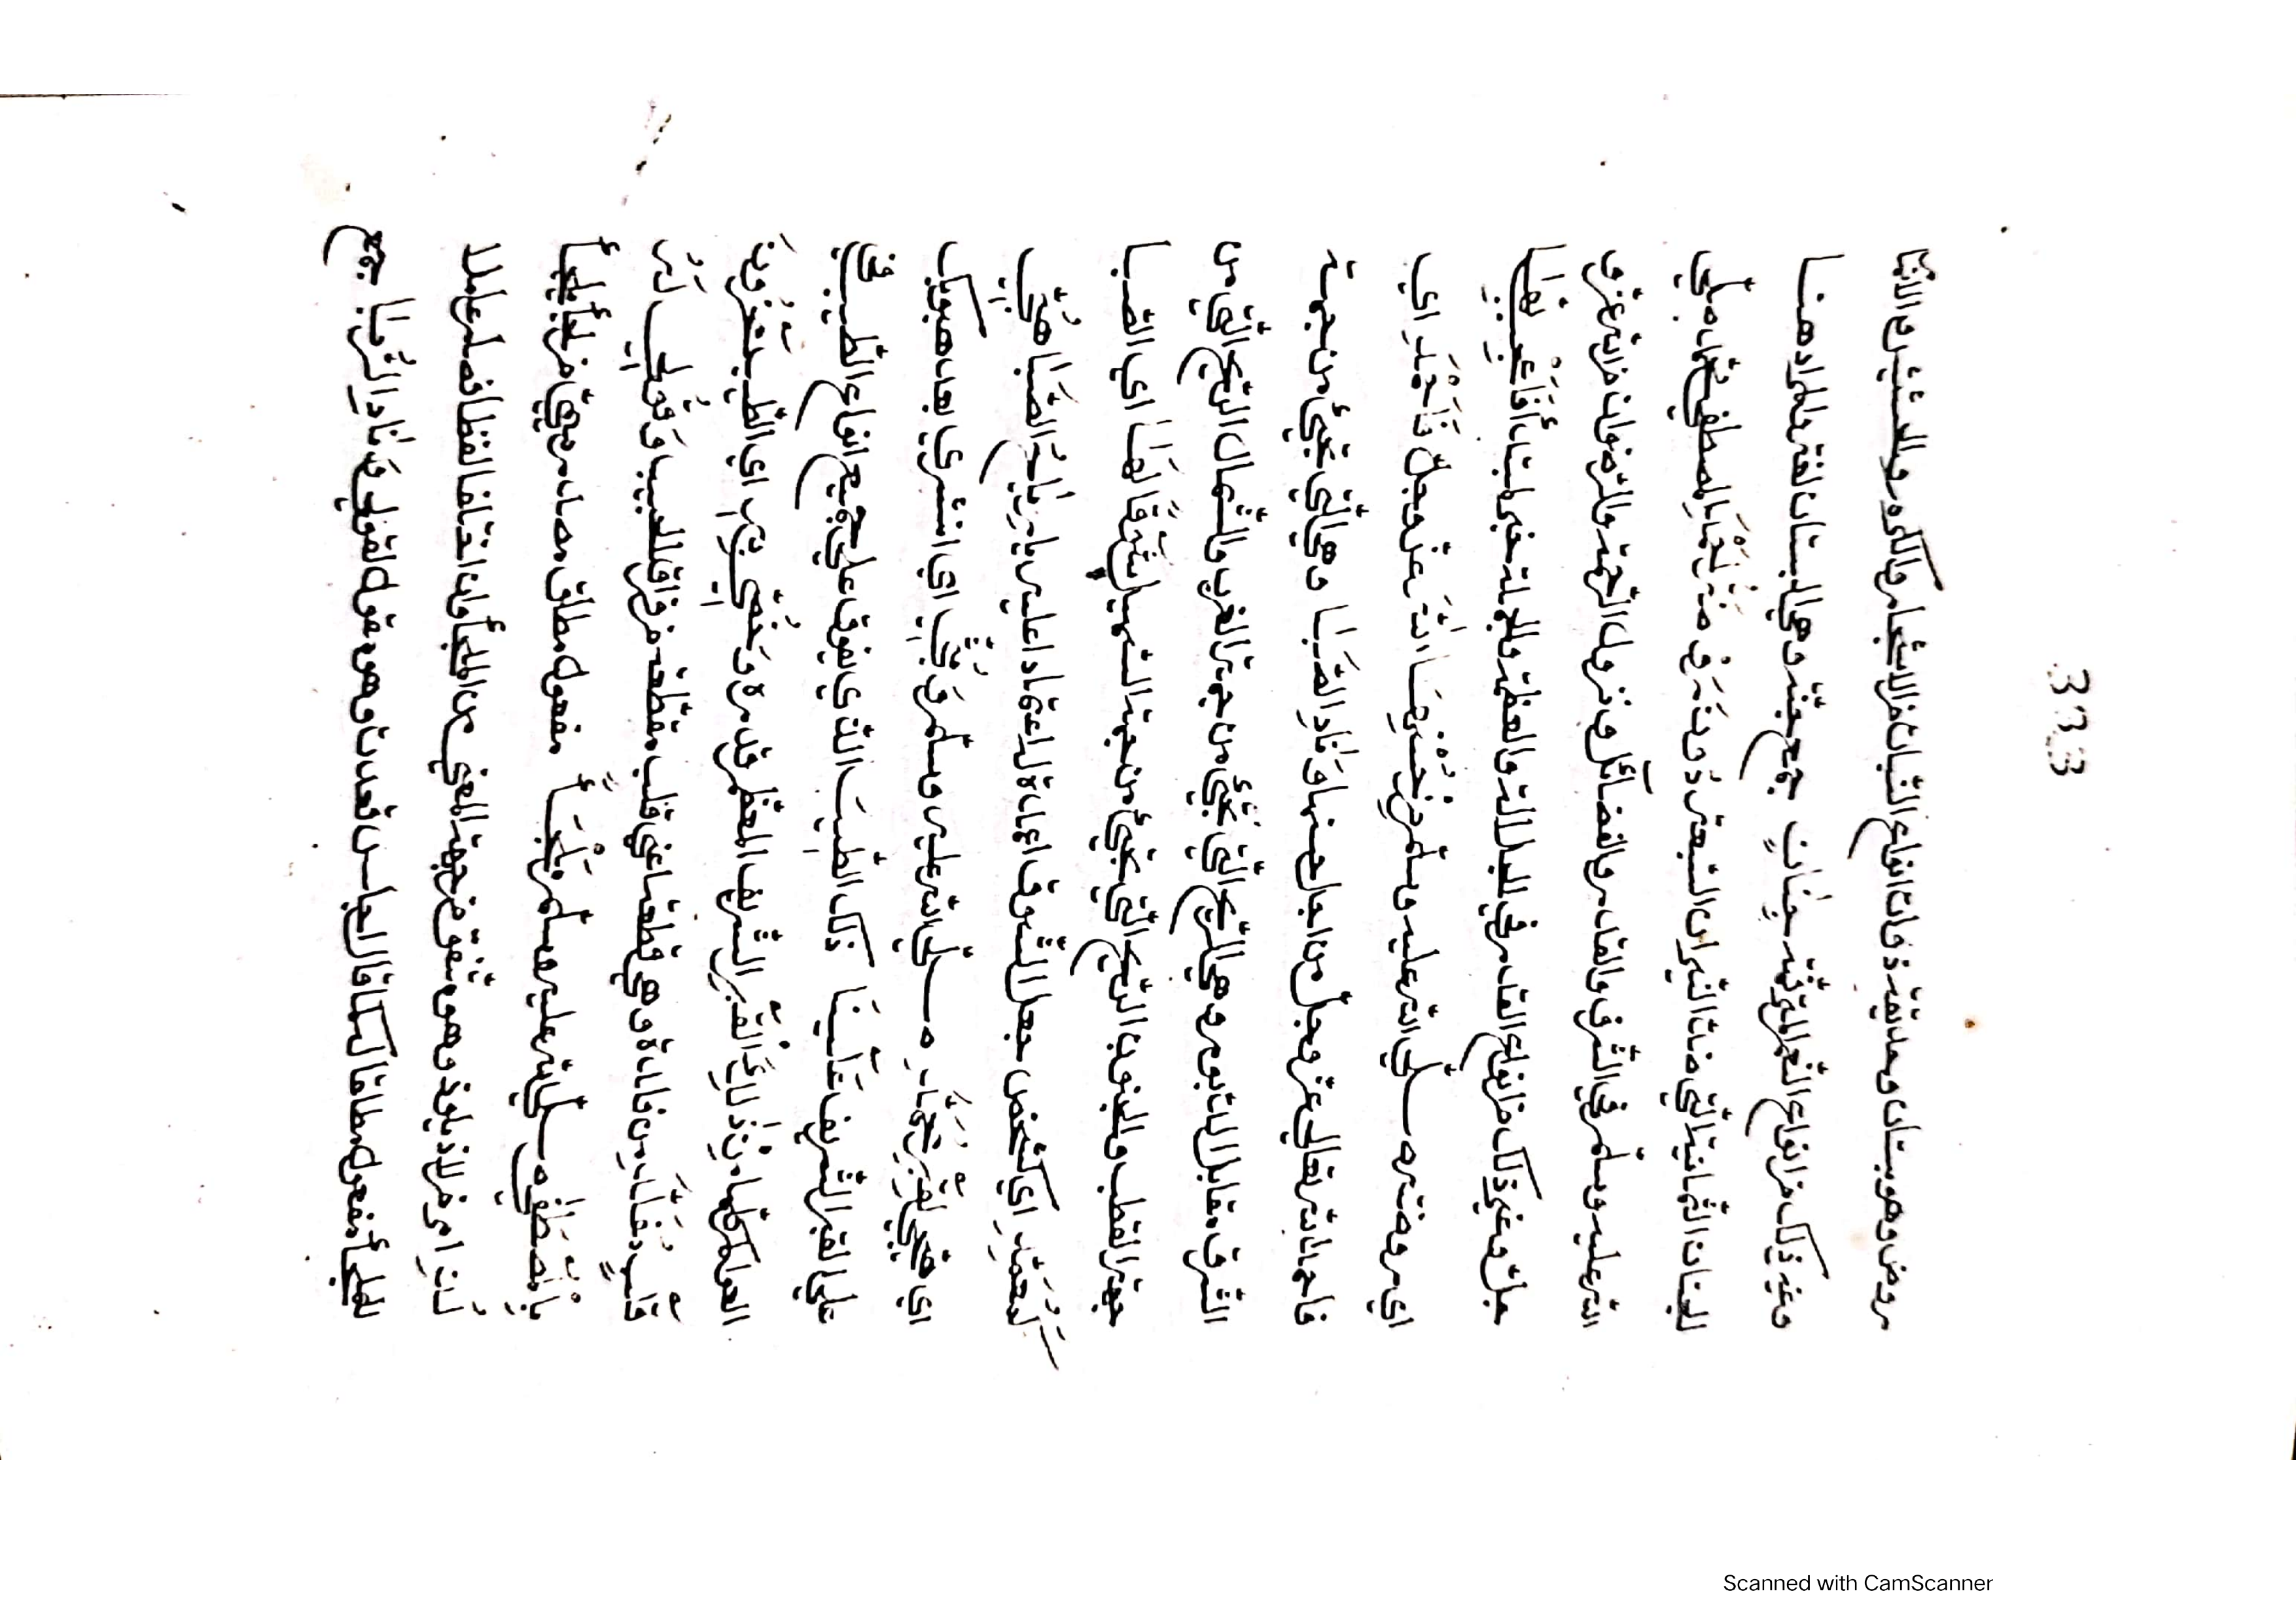 333
روض وهو بستان وحديقة ذات انواع النبات من الاشجار والكروم والحشيش والانها
وغير ذلك من انواع الثمر المؤنثة جنات جمع جنة وهي البستان لغة والمراد هنا
الجنان الثمانية التي ضد النيران السبعة المصطفى محمد صلى
الله عليه وسلم في الشرف والقدر والفضائل ونزول الرحمة والرضوان من الله عزو
جل وغير ذلك من انواع القدر في الجلالة والعظمة لها
اي روضته صلى الله عليه وسلم من حسنها الله عز وجل فاحمد اي
فاحمد الله تعالى عز وجل من اجل حسنها وناد الصبا وهي التي تجيئ من جهة
الشرق مقابل الدبور وهي الريح التي تجيئ من جهة الغرب والشمال الريح التي من
جهة القطب والجنوب الريح التي تجيئ من جهة السهيل شوقا لها اي الصبا
اي جعل الشوق يا رياح الصبا هبي
اي هجي لقبر محمد صلى الله عليه وسلم وبثي اي انشري بعد هبوبك
على القبر الشريف علينا ذلك الطيب الذي يفوق على جميع انواع الطيب في
العوالم كلها من ذلك القبر الشريف المعظم قدره
وهي قطعة اعني قلب مقطعة من فراق الحبيب وقولي له
بالمصطفى صلى الله عليه وسلم ملجأ مفعول مطلق مصدر ميمي من لجأ يلجأ
لذت من لاذ يلوذ وهو متفق من جهة المعنى مع الملجأ وان اختلفا لفظا فصار عاملا
لملجأ مفعول مطلقا كما قال الجالس قعدت وهو مقول لقولي وناد الربا جمع
Scanned with CamScanner